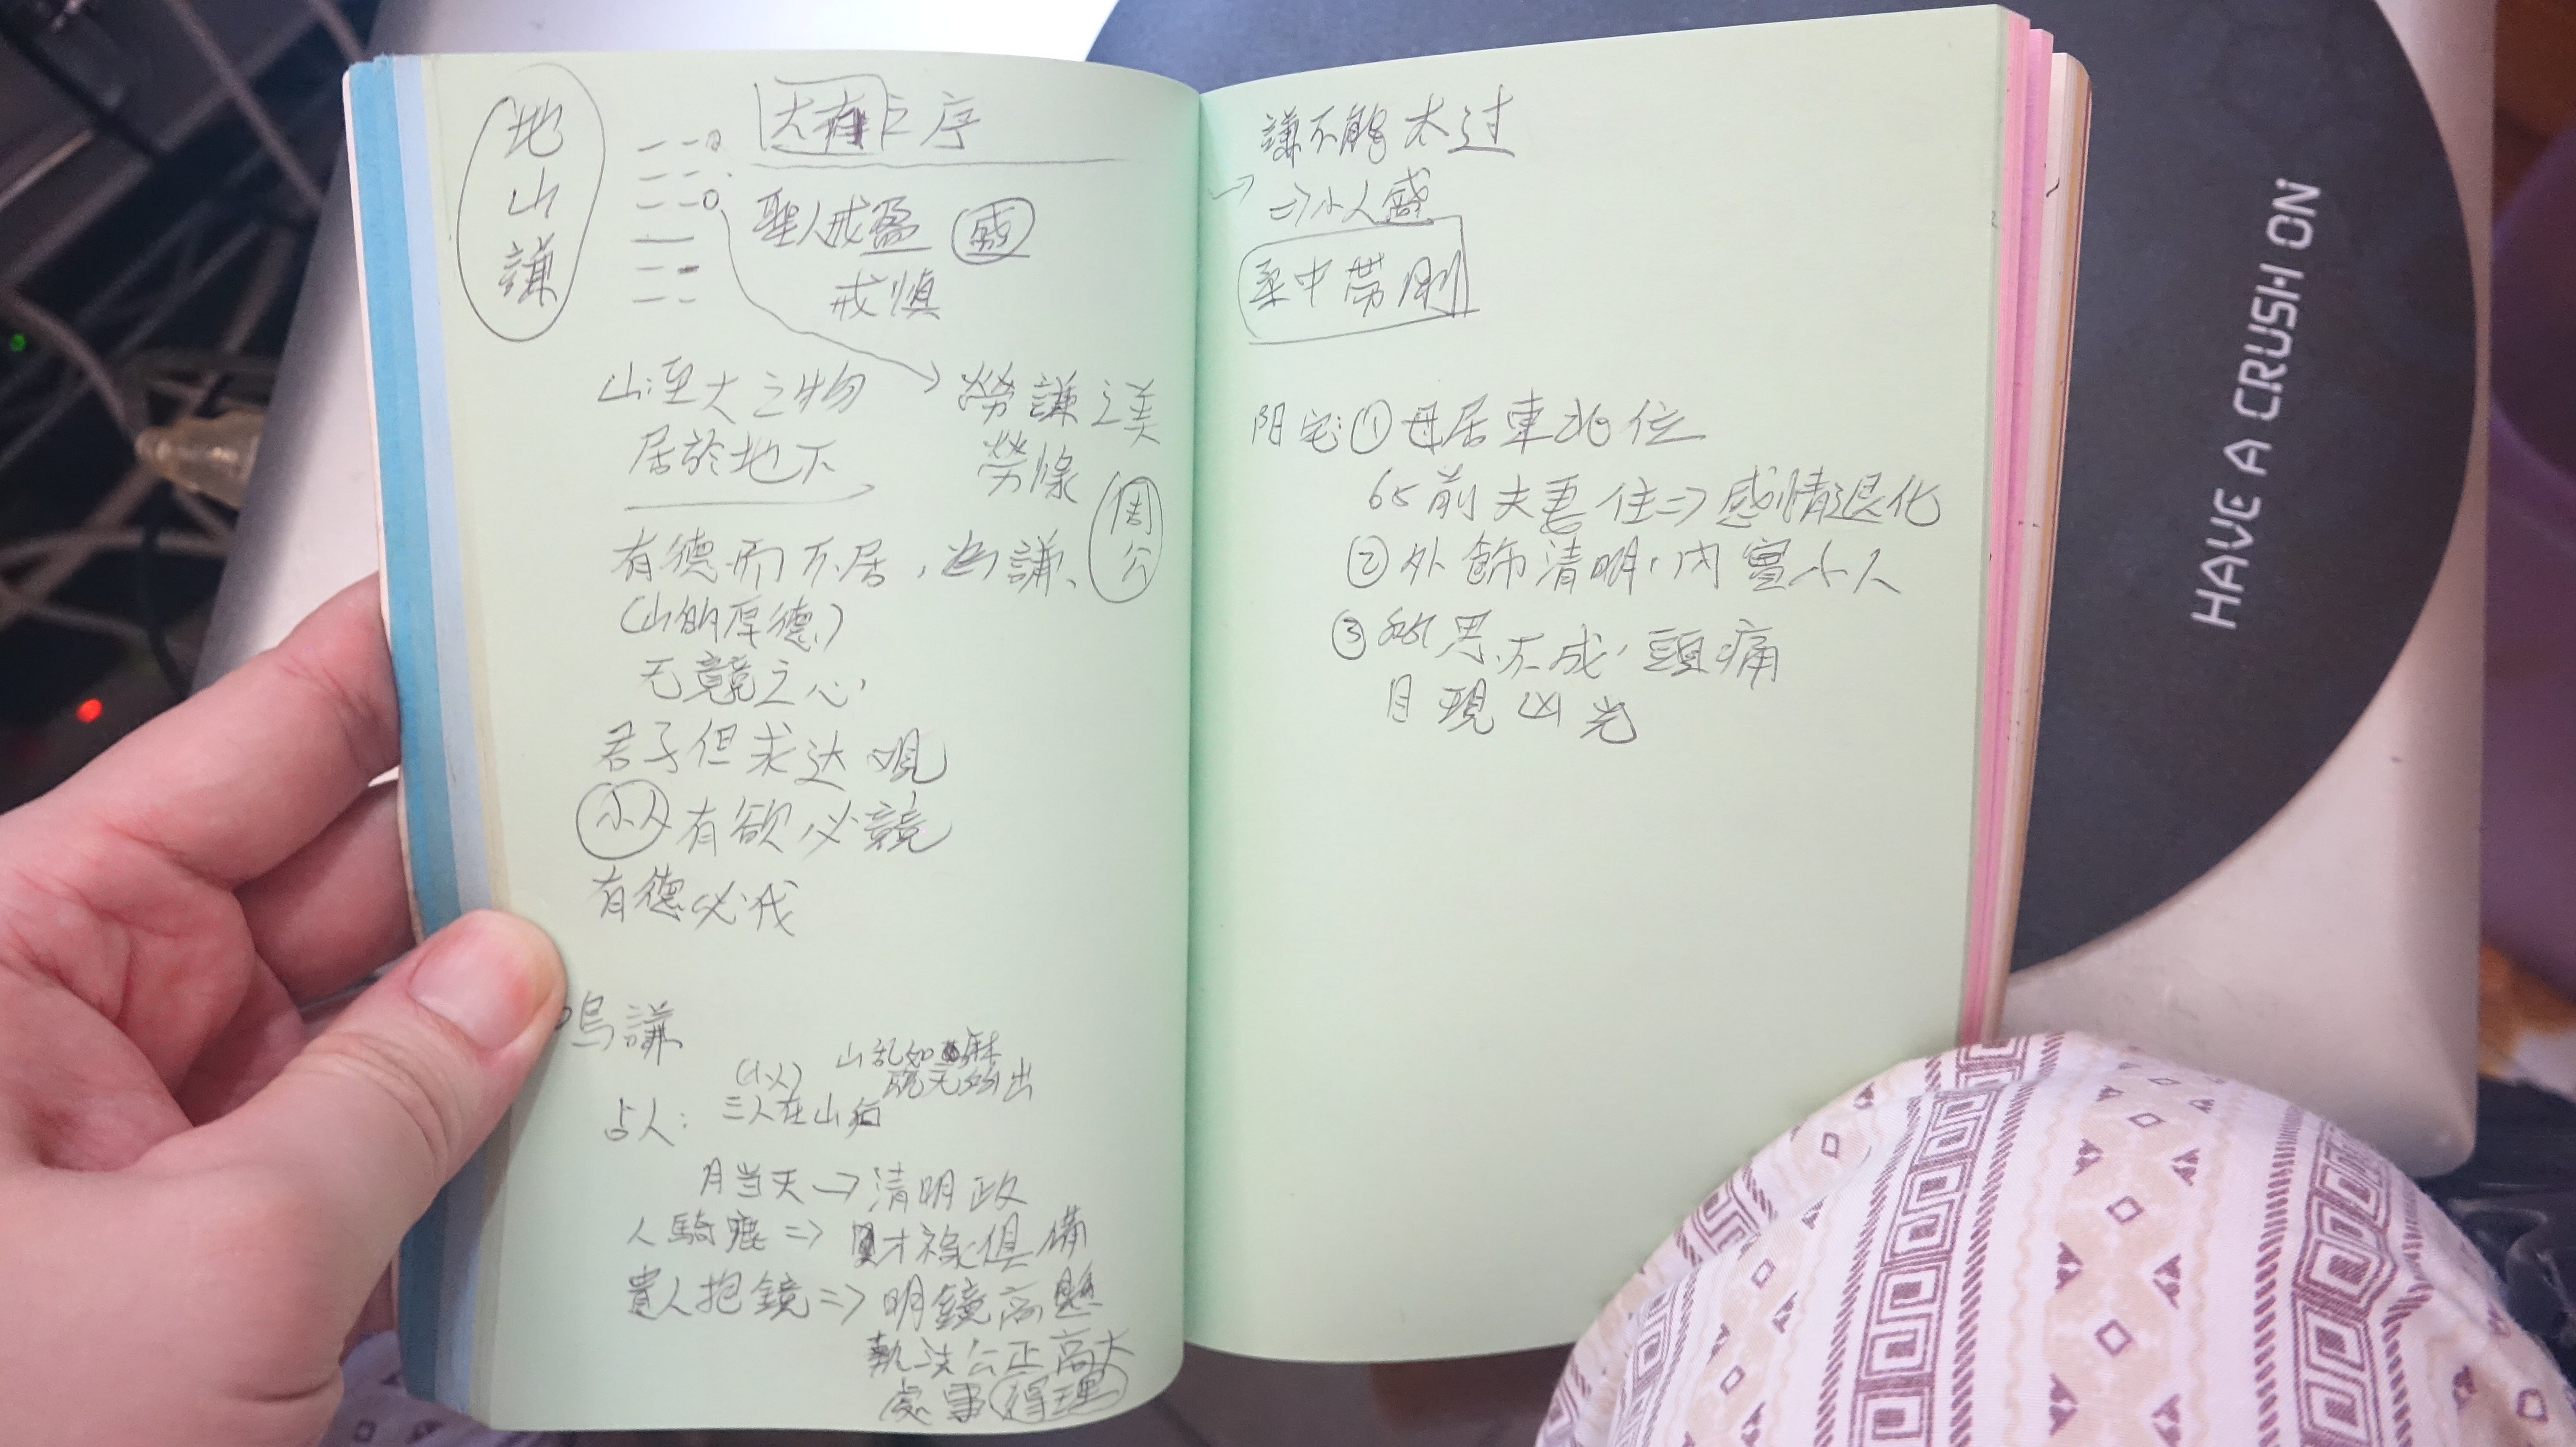 地山謙
大有之序
聖人戒盈 盛
戒慎
山:至大之物
居於地下
勞謙之美
勞慊
周公
有德而不居,為謙、
(山的厚德)
无競之心,
君子但求达觀
小人有欲必競
有德必伐
鳴謙
占人:
(小人)
三人在山
山乱如麻
月当天→清明政
人騎鹿⇒財祿俱備
貴人抱鏡⇒明鏡高懸
執法公正高大
處事得理
謙不能太过
→
⇒小人盛
柔中帶剛
阳宅:①母居東北位
65前夫妻住⇒感情退化
②外飾清明,內實小人
③所思不成,頭痛
目現凶光
HAVE A CRUSH ON